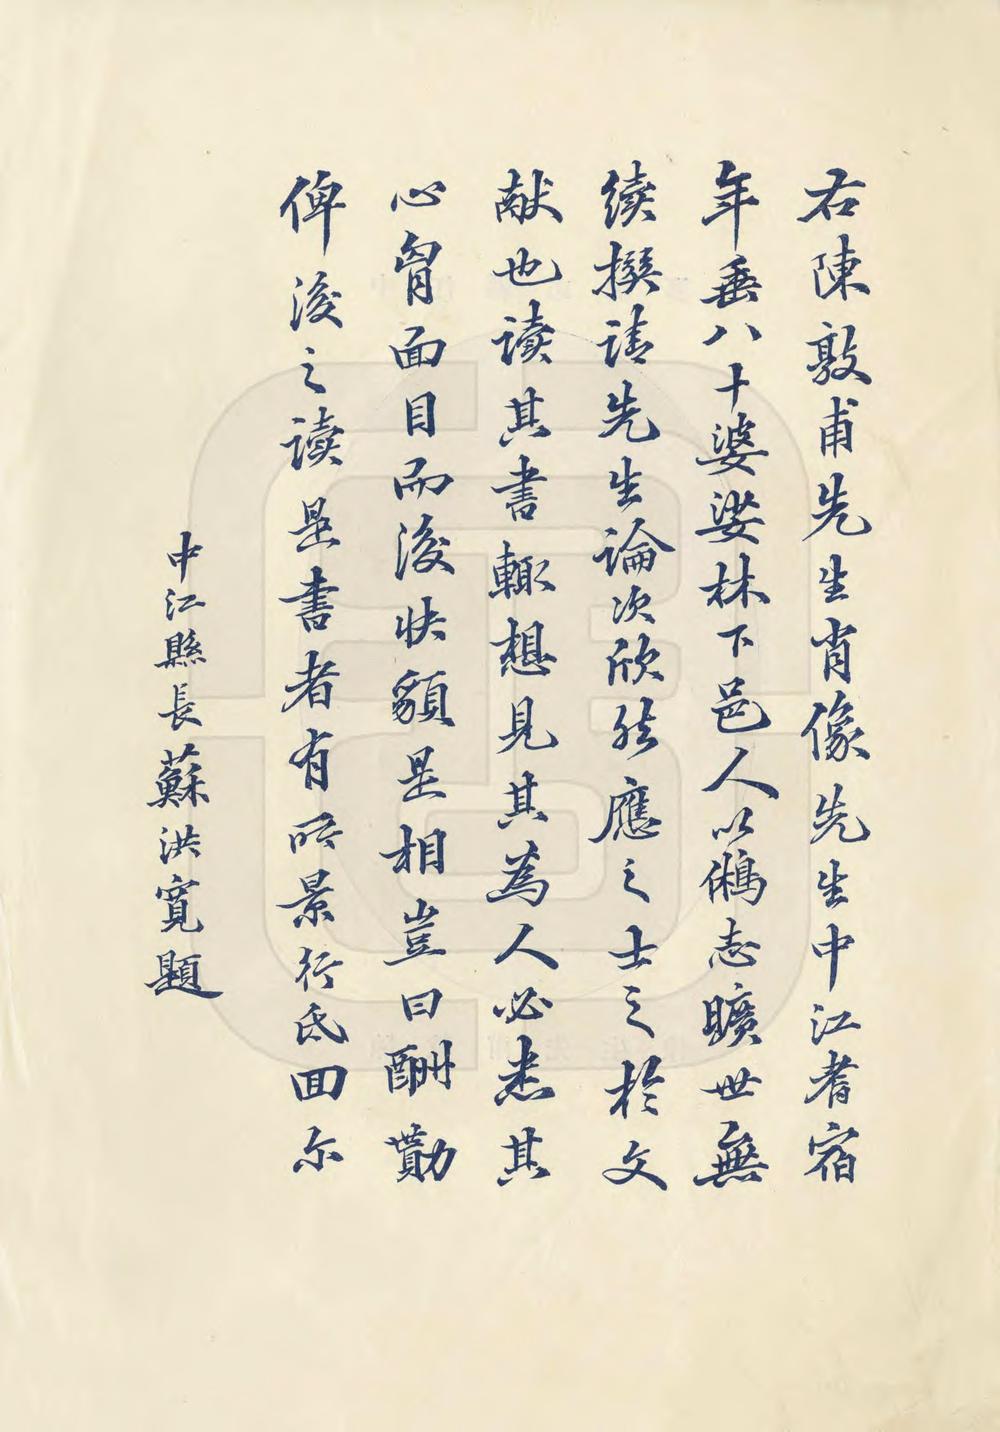 右陳敦甫先生肖像先生中江耆宿
年垂八十婆娑林下邑人以縣志曠世無
續撰請先生論次欣然應之士之於文
献也读其書輒想見其為人必悉其
心胷面目而後快顧是相豈曰酬勩
俾後之读是書者有所景行氐回尔
中江縣長蘇洪寬題